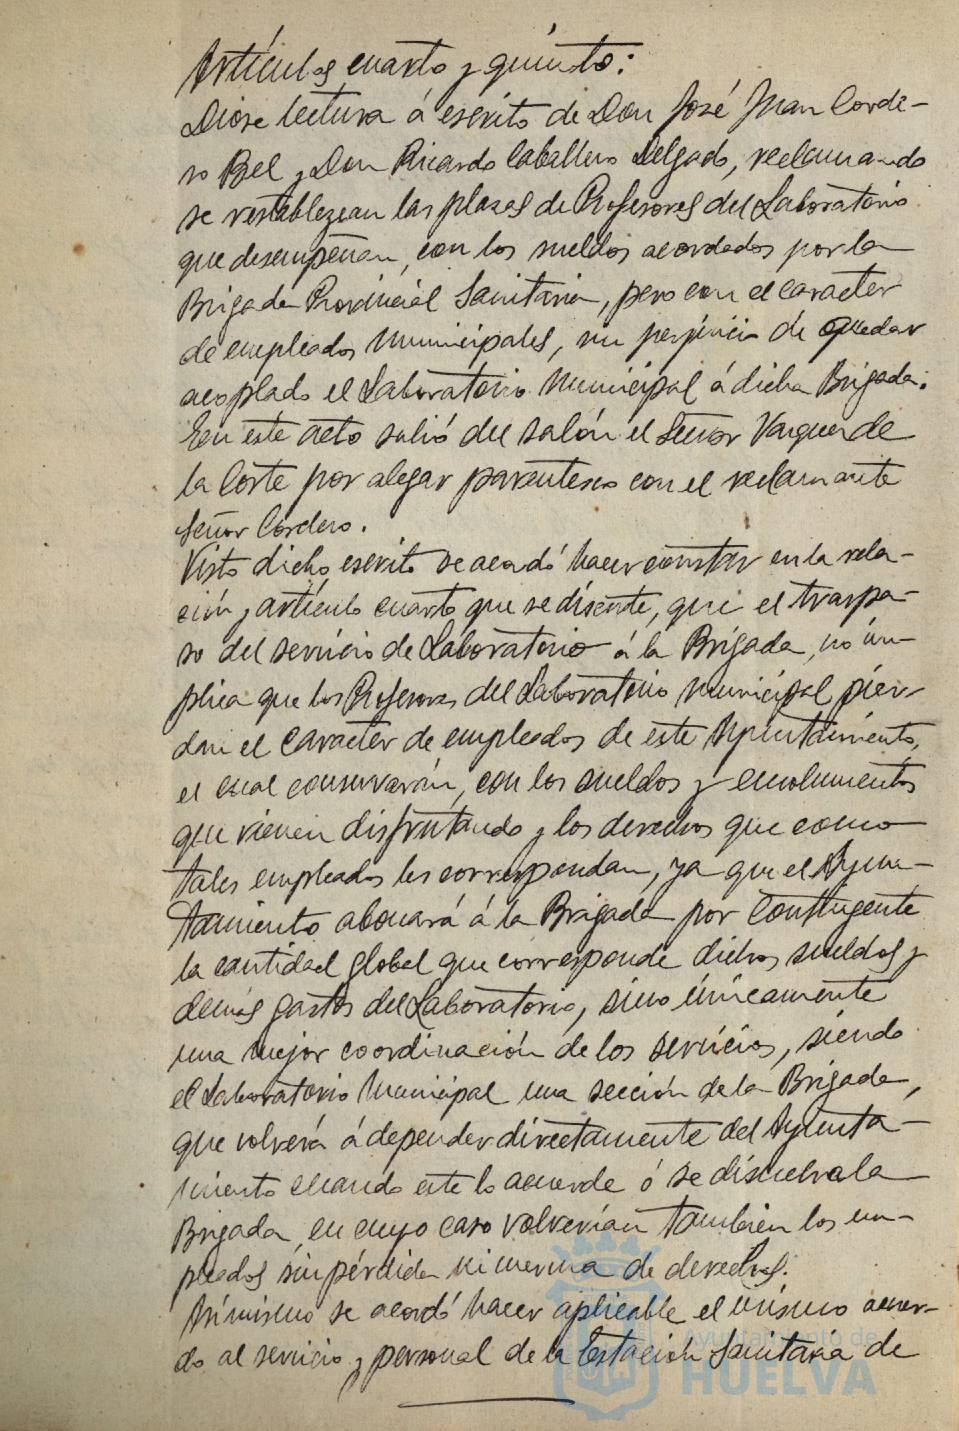 Artículos cuarto y quinto:
Diose lectura á escrito de Don José Juan Corde-
ro Bel y Don Ricardo Caballero Delgado, reclamando
se restablezcan las plazas de Profesores del Laboratorio
que desempeñan, con los sueldos acordados por la
Brigada Provincial Sanitaria, pero con el caracter
de empleados Municipales, sin perjuicio de quedar
acoplado el Laboratorio Municipal á dicha Brigada.
En este acto salió del salón el Señor Vazquez de
la Corte por alegar parentesco con el reclamante
Señor Cordero.
Visto dicho escrito se acordó hacer constar en la rela-
ción y artículo cuarto que se discute, que el traspa-
so del servicio de Laboratorio á la Brigada, no im-
plica que los Profesores del Laboratorio Municipal pier-
dan el caracter de empleados de este Ayuntamiento,
el cual conservarán, con los sueldos y emolumentos
que vienen disfrutando y los derechos que como
tales empleados les correspondan, ya que el Ayun-
tamiento abonará á la Brigada por Contingente
la cantidad global que corresponde dichos sueldos y
demás gastos del Laboratorio, sino únicamente
una mejor coordinación de los servicios, siendo
el Laboratorio Municipal una sección de la Brigada,
que volverá á depender directamente del Ayunta-
miento cuando este lo acuerde ó se disuelva la
Brigada, en cuyo caso volverían también los em-
pleados sin pérdida ni merma de derechos.
Asimismo se acordó hacer aplicable el mismo acuer-
do al servicio y personal de la Estación Sanitaria de
Ayuntamiento de
HUELVA